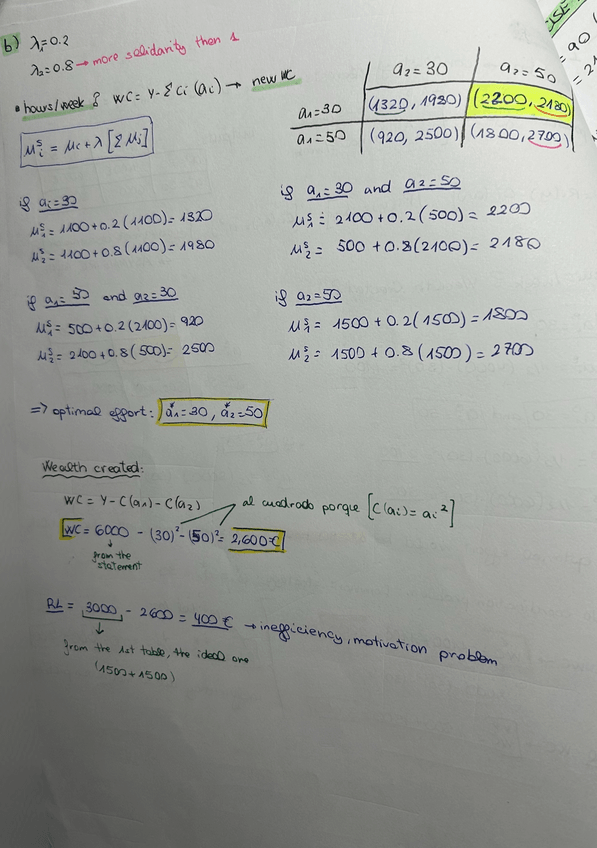 b) λ₁=0.2
λ₂=0.8 → more solidarity then 1
• hours/week ? WC = Y - Σ Ci (ai) → new WC
a₂=30 a₂=50
a₁=30 (1320, 1980) (2200, 2180)
a₁=50 (920, 2500) (1800, 2700)
μᵢˢ = μc + λ [Σ μⱼ]
if ai=30
μ₁ˢ = 1100 + 0.2 (1100) = 1320
μ₂ˢ = 1100 + 0.8 (1100) = 1980
if a₁=30 and a₂=50
μ₁ˢ = 2100 + 0.2 (500) = 2200
μ₂ˢ = 500 + 0.8 (2100) = 2180
if a₁=50 and a₂=30
μ₁ˢ = 500 + 0.2 (2100) = 920
μ₂ˢ = 2100 + 0.8 (500) = 2500
if a₂=50
μ₁ˢ = 1500 + 0.2 (1500) = 1800
μ₂ˢ = 1500 + 0.8 (1500) = 2700
=> optimal effort: a₁*=30, a₂*=50
Wealth created:
WC = Y - C(a₁) - C(a₂)
al cuadrado porque [C(ai) = ai²]
WC = 6000 - (30)² - (50)² = 2,600€
from the
statement
RL = 3000 - 2600 = 400€ → inefficiency, motivation problem
from the 1st table, the ideal one
(1500+1500)